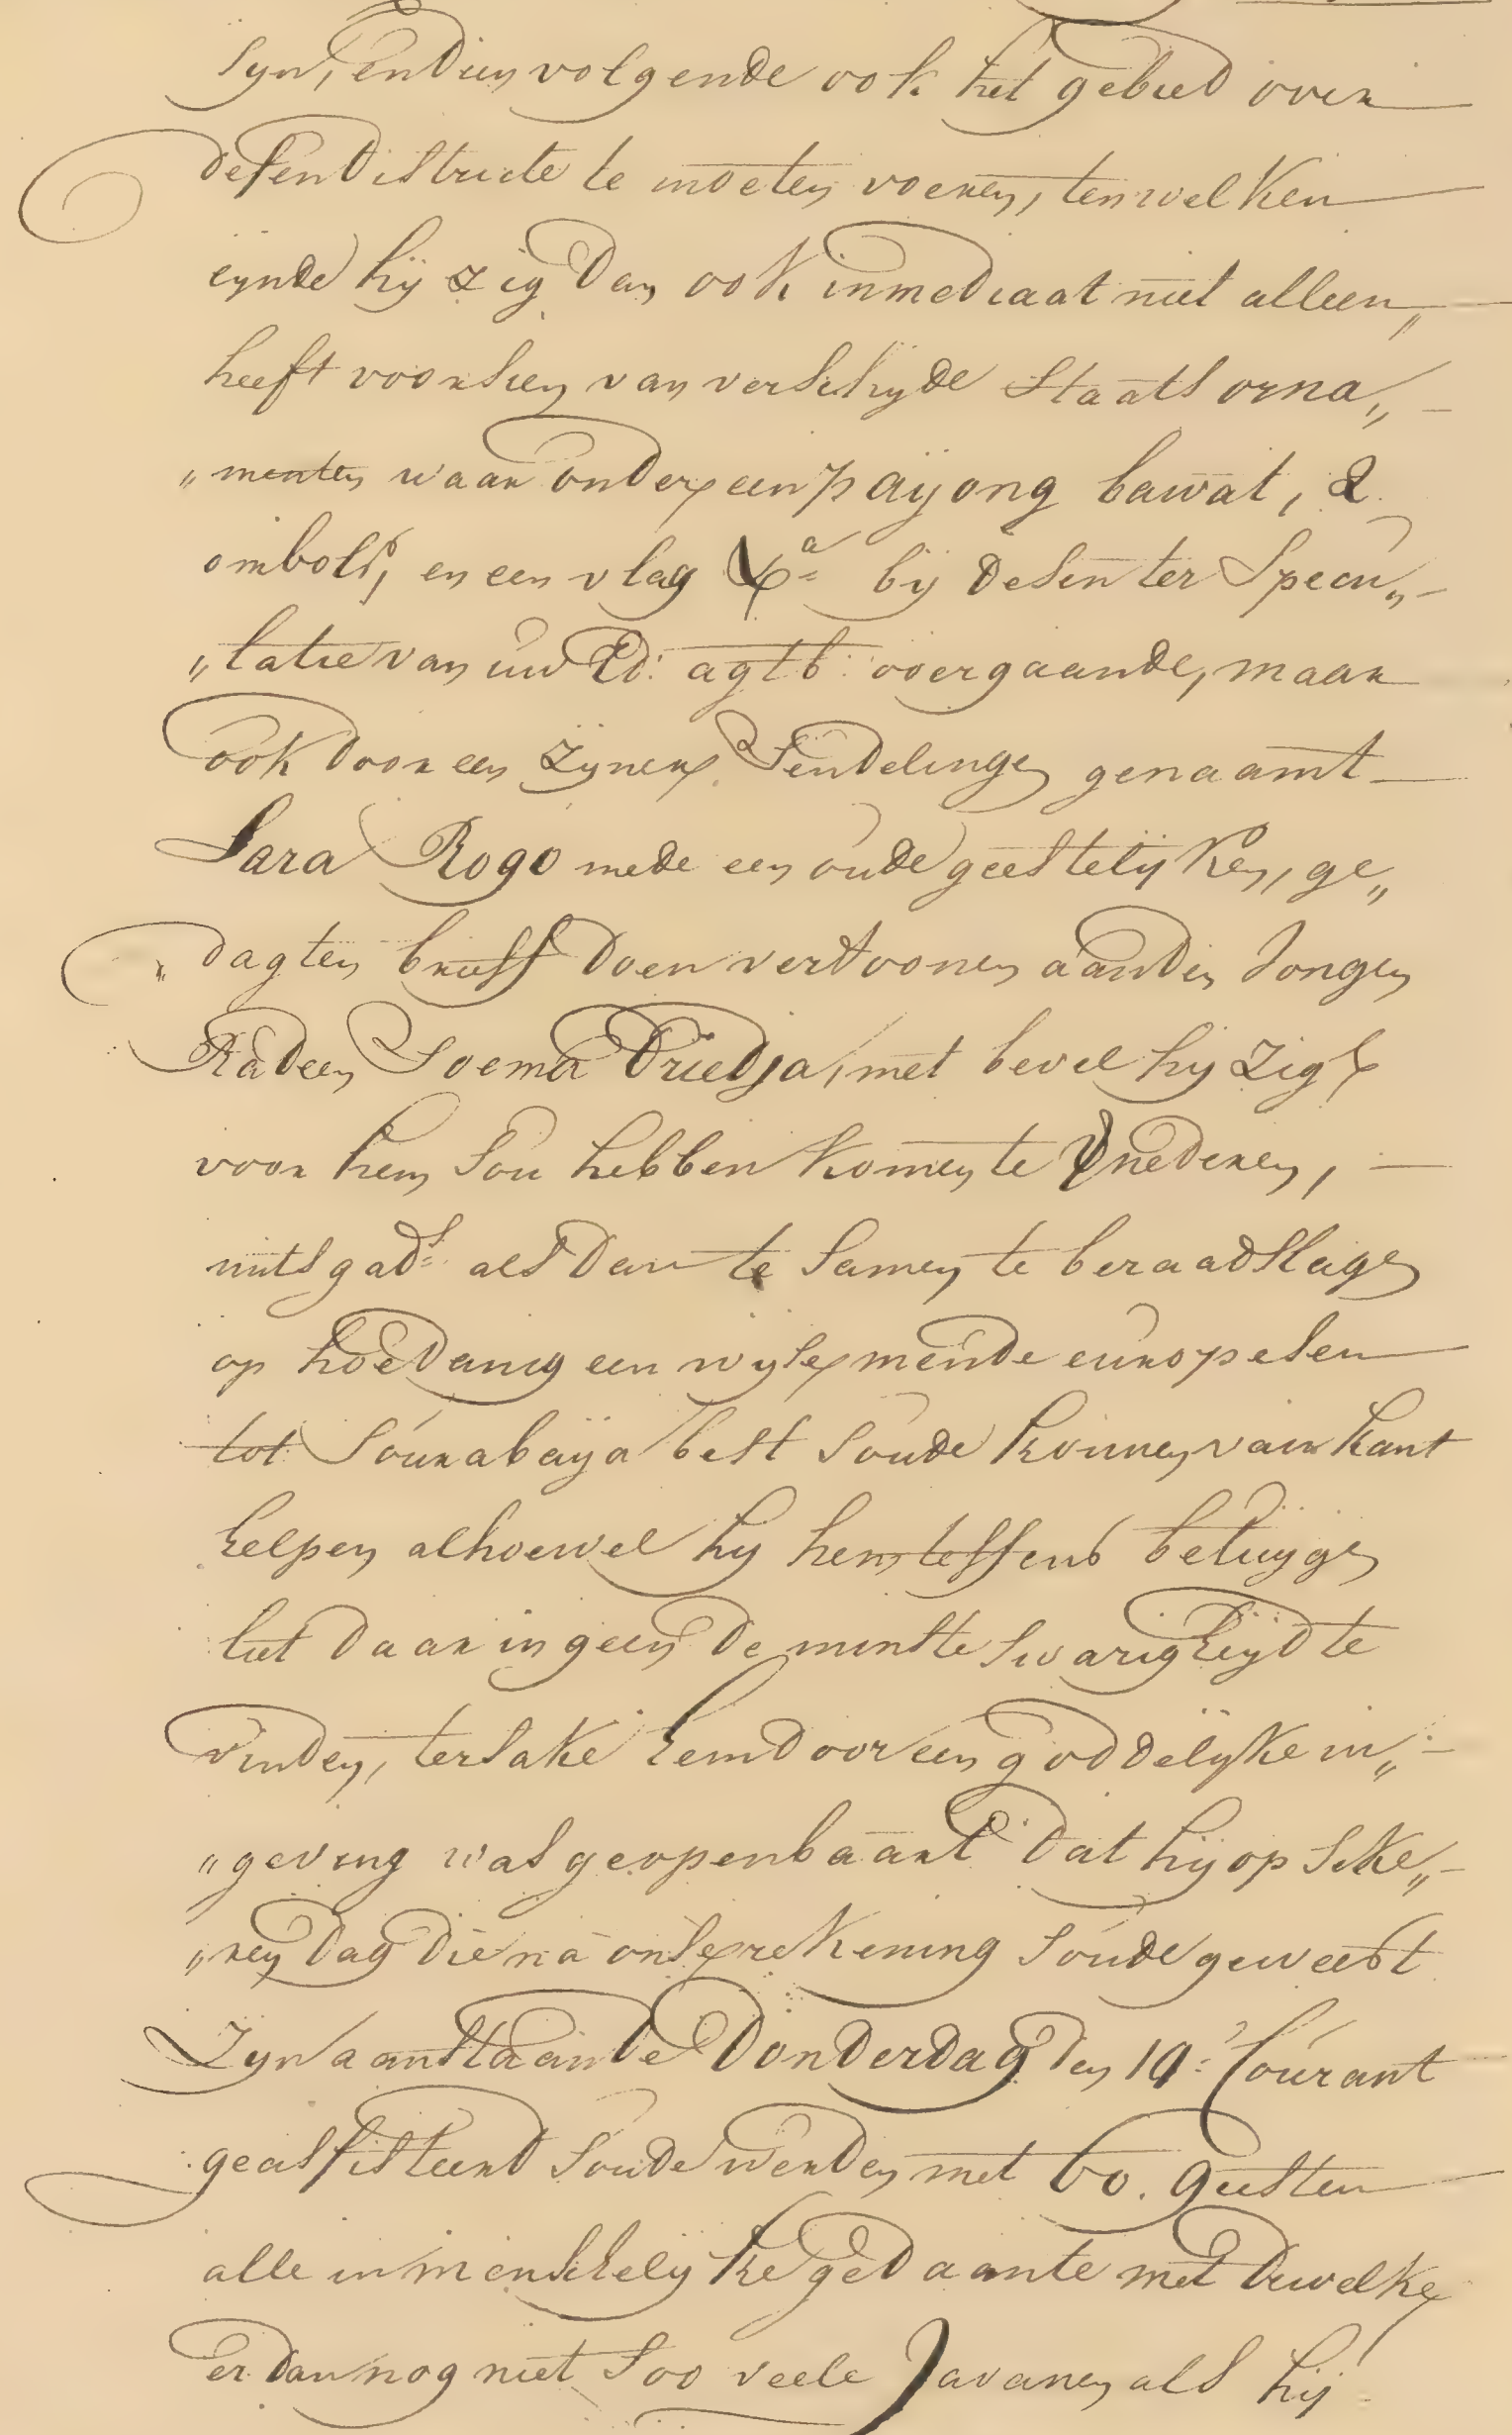 sijn, en dien volgende ook het gebied over
desen districte te moeten voeren, ten welken
eijnde hij zig dan ook inmediaat niet alleen„
heeft voorsien van verscheijde staats orna„
„menten waar onder een paijong bawat, 2
ombols, en een vlag &a bij desen ter specu„
„latie van uw Ed: agtb: overgaande, maar
ook door een zijner sendelingen genaamt
Sara Rogo mede een oude geestelijken, ge„
„dagten brieff doen vertoonen aan den Jongen
Radeen Soema Driedja, met bevel hij zig
voor hem sou hebben komen te vnederen,
mitsgads als dan te samen te beraadslagen
op hoedanig een wijse men de europesen
tot Sourabaija best soude konnen van kant
helpen alhoewel hij hem teffens betuijgen
liet daar in geen de minste swarigheijd te
vinden, ter sake hem door een goddelijke in„
„geving was geopenbaart dat hij op seke„
„ren dag die na onse rekening soude geweest
Zijn aanstaande Donderdag den 19:' Courant
geassisteerd soude werden met 60. Geesten
alle in menschelijke gedaante met dewelke
er dan nog niet soo veele Javanen als hij